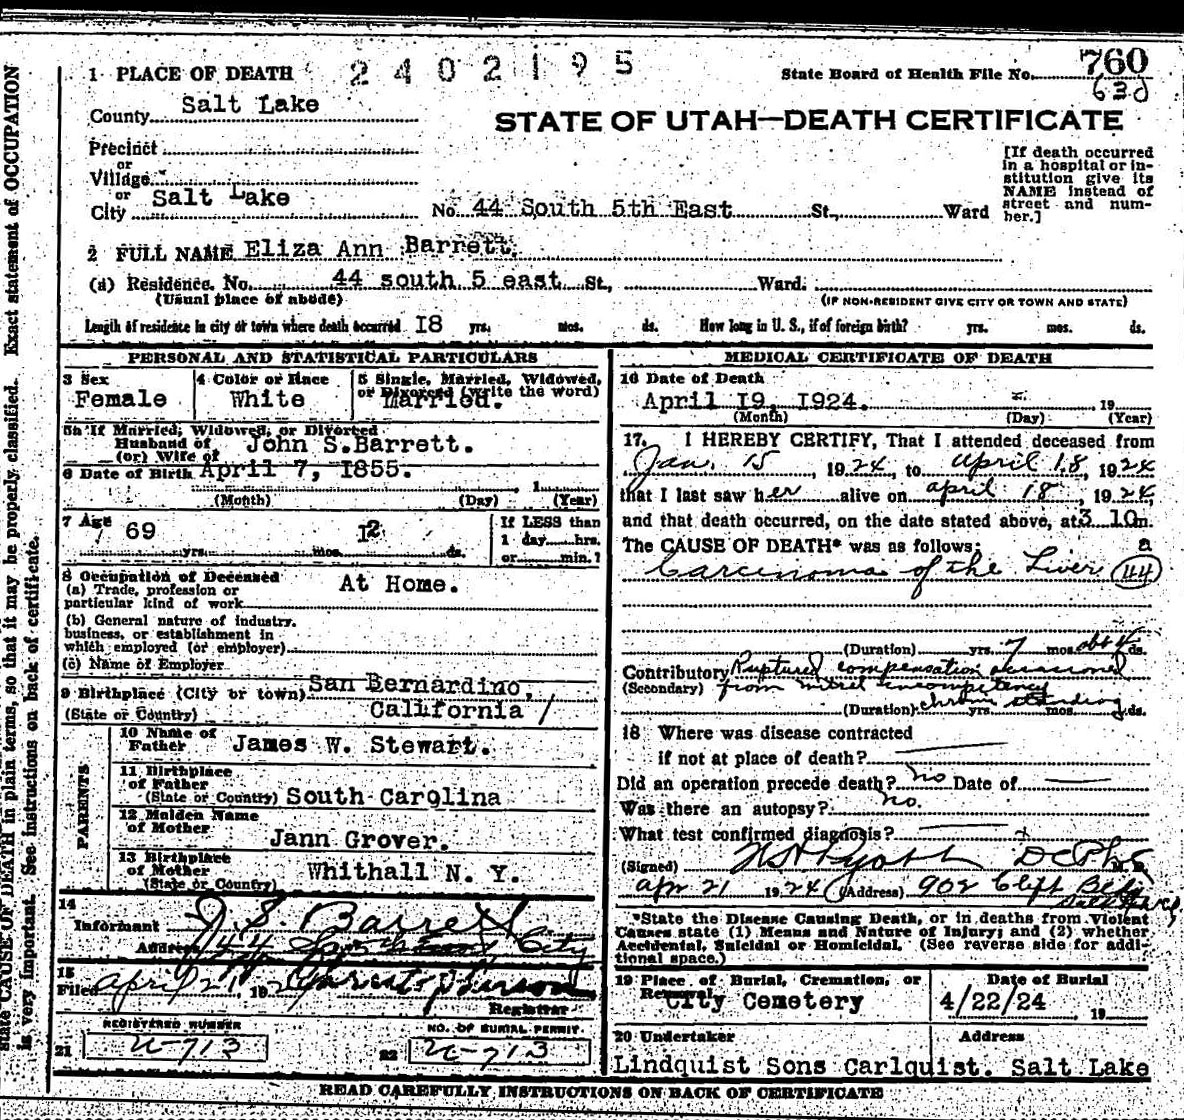 1 PLACE OF DEATH 2402195
State Board of Health File No. 760
630
County Salt Lake
STATE OF UTAH—DEATH CERTIFICATE
Precinct
or
Village
or
City Salt Lake
No. 44 South 5th East St., Ward
[If death occurred
in a hospital or in-
stitution give its
NAME instead of
street and num-
ber.]
2 FULL NAME Eliza Ann Barrett.
(a) Residence. No. 44 south 5 east St., Ward.
(Usual place of abode)
(IF NON-RESIDENT GIVE CITY OR TOWN AND STATE)
Length of residence in city or town where death occurred 18 yrs. mos. ds. How long in U. S., if of foreign birth? yrs. mos. ds.
PERSONAL AND STATISTICAL PARTICULARS
3 Sex
Female
4 Color or Race
White
5 Single, Married, Widowed,
or Divorced (write the word)
Married.
5a If Married, Widowed, or Divorced
Husband of
(or) Wife of
John S.Barrett.
6 Date of Birth April 7, 1855.
, 1
(Month) (Day) (Year)
7 Age
69 12
yrs. mos. ds.
If LESS than
1 day hrs.
or min.?
8 Occupation of Deceased At Home.
(a) Trade, profession or
particular kind of work
(b) General nature of industry,
business, or establishment in
which employed (or employer)
(c) Name of Employer
9 Birthplace (City or town) San Bernardino,
(State or Country) California /
PARENTS
10 Name of
Father James W. Stewart.
11 Birthplace
of Father
(State or Country) South Carolina
12 Maiden Name
of Mother
Jann Grover.
13 Birthplace
of Mother
(State or Country) Whithall N. Y.
14
Informant J. S. Barrett
Address 44 City
15
Filed April 21, 19
Registrar
REGISTERED NUMBER
21 U-713
NO. OF BURIAL PERMIT
22 U-713
MEDICAL CERTIFICATE OF DEATH
16 Date of Death
April 19, 1924. , 19
(Month) (Day) (Year)
17. I HEREBY CERTIFY, That I attended deceased from
Jan. 15 1924, to April 18, 1924
that I last saw her alive on April 18, 1924,
and that death occurred, on the date stated above, at 3 10 m.
a
The CAUSE OF DEATH* was as follows:
Carcinoma of the Liver (44)
(Duration) yrs. 7 mos. ds.
Contributory Ruptured compensation occasioned
(Secondary) from mitral incompetency
(Duration) chronic standing yrs. mos. ds.
18 Where was disease contracted
if not at place of death?
Did an operation precede death? no Date of
Was there an autopsy? no.
What test confirmed diagnosis?
(Signed)
Apr 21 1924 (Address) 902 Clift Bldg
*State the Disease Causing Death, or in deaths from Violent
Causes state (1) Means and Nature of Injury; and (2) whether
Accidental, Suicidal or Homicidal. (See reverse side for addi-
tional space.)
19 Place of Burial, Cremation, or
Removal City Cemetery
Date of Burial
4/22/24 , 19
20 Undertaker Address
Lindquist Sons Carlquist. Salt Lake
READ CAREFULLY INSTRUCTIONS ON BACK OF CERTIFICATE
state CAUSE OF DEATH in plain terms, so that it may be properly classified. Exact statement of OCCUPATION
is very important. See instructions on back of certificate.